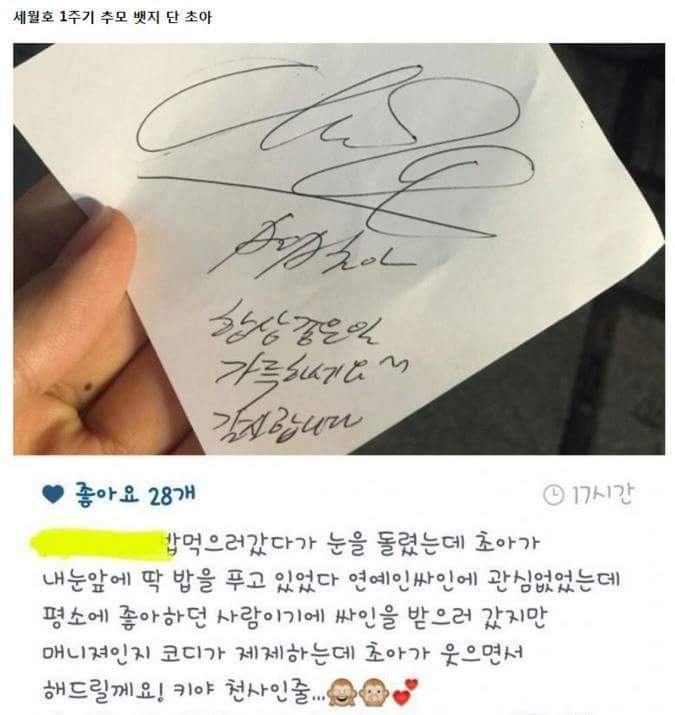 세월호 1주기 추모 뱃지 단 초아
초아
항상 좋은일
가득하세요~
감사합니다
좋아요 28개
17시간
밥먹으러갔다가 눈을 돌렸는데 초아가
내눈앞에 딱 밥을 푸고 있었다 연예인싸인에 관심없었는데
평소에 좋아하던 사람이기에 싸인을 받으러 갔지만
매니져인지 코디가 제제하는데 초아가 웃으면서
해드릴께요! 키야 천사인줄...🙈🙊💕